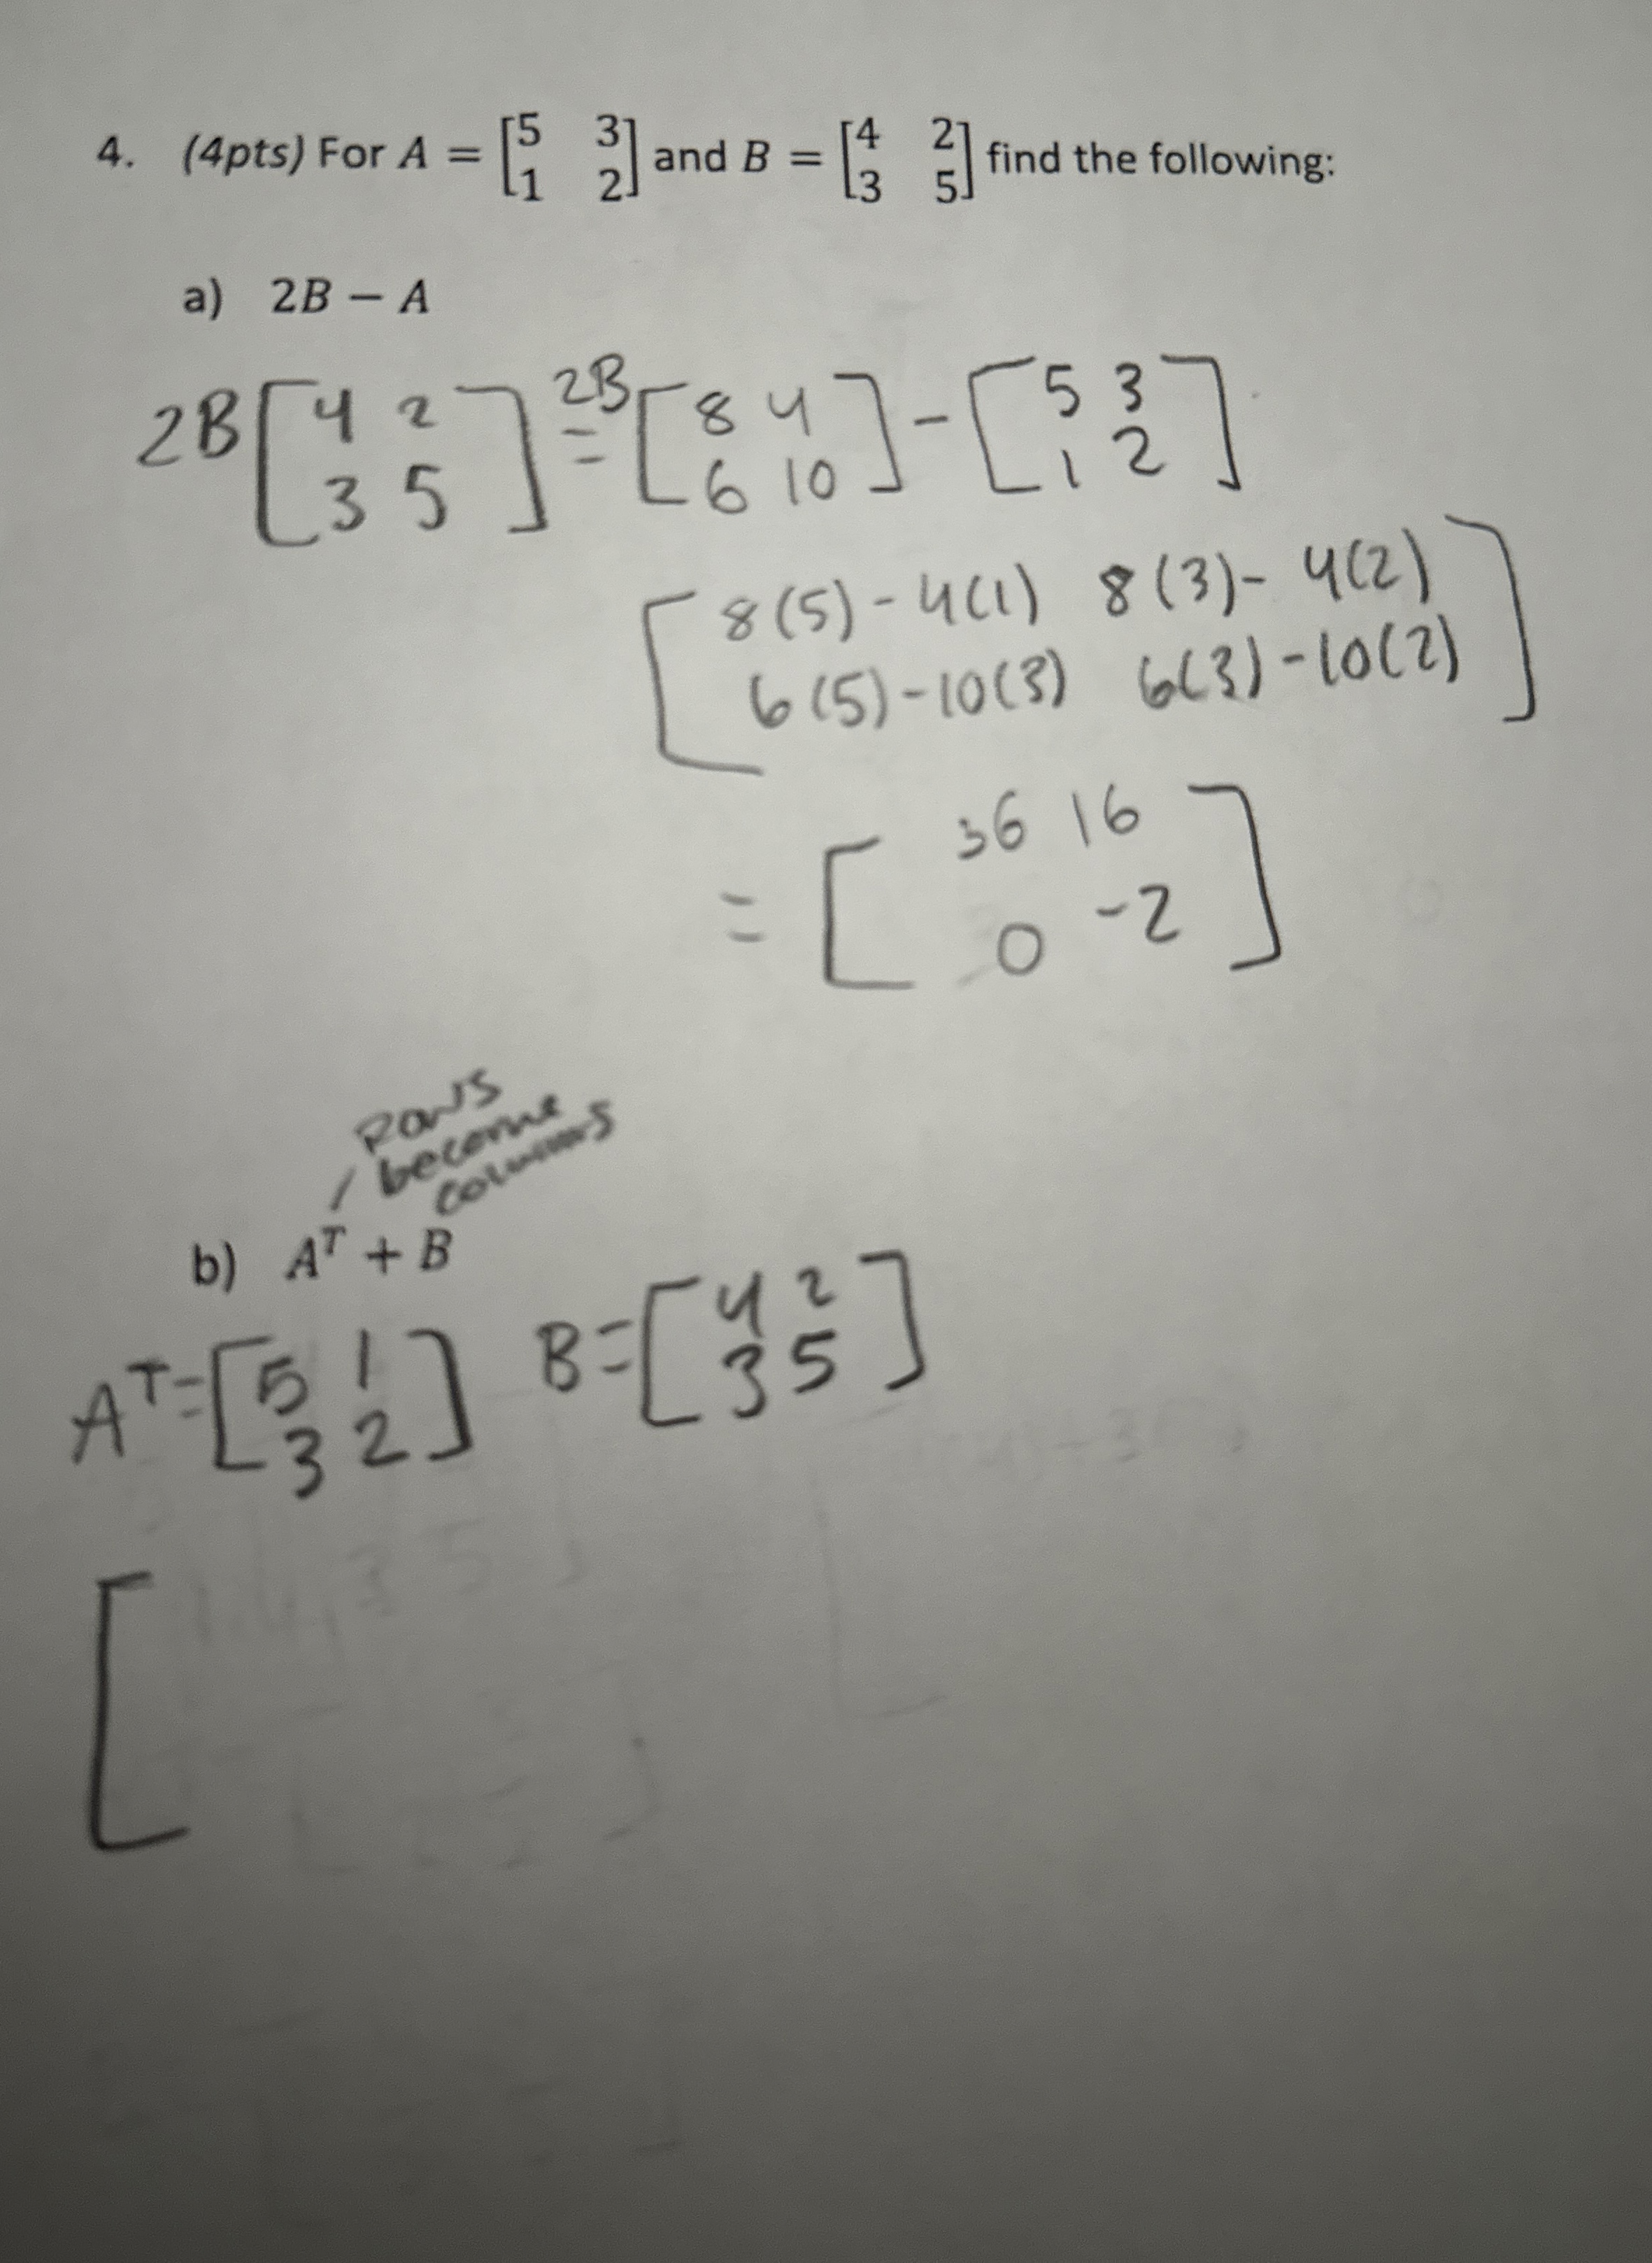 4. (4pts) For A = [5 3; 1 2] and B = [4 2; 3 5] find the following:
a) 2B − A
2B [4 2; 3 5] = 2B [8 4; 6 10] - [5 3; 1 2]
[8(5)-4(1) 8(3)-4(2)
6(5)-10(3) 6(3)-10(2)]
= [36 16
0 -2]
Rows
become
columns
b) Aᵀ + B
Aᵀ = [5 1; 3 2] B = [4 2; 3 5]
[